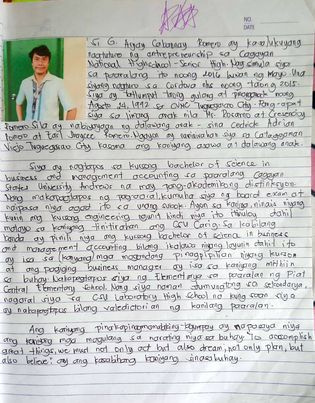 NO.
DATE
Si G. Argay Cabannay Romero ay kasalukuyang
nagtuturo ng entrepreneurship sa Cagayan
National Highschool - Senior High. Nag simula siya
sa paaralang ito noong 2016 buwan ng Mayo. Una
siyang nagturo sa Cordova noong taong 2015.
Siya ay tatlumpu't taong gulang at ipinanganak noong
Agosto 24, 1992 sa CVMC Tuguegarao City. Pang-apat
siya sa limang anak nila Ma. Rosario at Crescency
Romero. Sila ay nabiyayaan ng dalawang anak - sina Cedrick Adrian
Romero at Earl Jhaycee Romero. Ngayon ay naninirahan siya sa Cataggaman
Viejo Tuguegarao City kasama ang kaniyang asawa at dalawang anak.
Siya ay nagtapos sa kursong bachelor of science in
business and management accounting sa paaralang Cagayan
State University Andrews na may pang-akademikong distinksyon.
Nang makapagtapos ng pag-aaral, kumuha siya ng board exam at
naipasa niya agad ito sa unang subok. Ayon sa kaniya, ninais niyang
kunin ang kursong engineering ngunit hindi niya ito itinuloy dahil
malayo sa kaniyang tinitirahan ang CSU Carig. Sa kabilang
banda ay pinili niya ang kursong bachelor of science in business
and management accounting bilang ikalawa niyang layunin dahil ito
ay isa sa kaniyang mga magandang pinagpipilian niyang kurso
at ang pagiging business manager ay isa sa kaniyang ambisyon
sa buhay. Nakapagtapos siya ng elementarya sa paaralan ng Piat
Central Elementary School. Nang siya naman tumungtong sa sekondarya,
nagaral siya sa CSU Laboratory High School na kung saan siya
ay nakapagtapos bilang valedictorian ng kanilang paaralan.
Ang kaniyang pinakapinagmamalaking tagumpay ay napasaya niya
ang kaniyang mga magulang sa narating niya sa buhay. To accomplish
great things, we must not only act but also dream, not only plan, but
also believe; ay ang kasabihang kaniyang isinasabuhay.